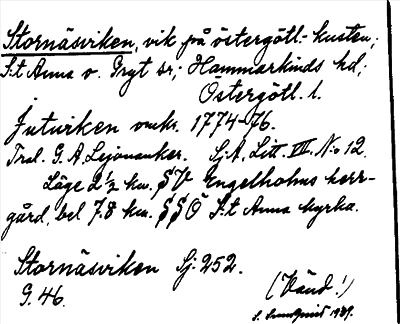 Stornäsviken, vik på östergötl.-kusten;
S:t Anna o. Gryt sr; Hammarkinds hd;
Östergötl. l.
Juturken omkr. 1774-76.
Tral. G. A. Lejonanker. Sj.A, Litt. VII, N:o 12.
Läge 2 1/2 km. SV Engelholms herr-
gård, bel 7.8 km. SSÖ S:t Anna kyrka.
Stornäsviken Sj. 252.
G. 46.
(Vänd!)
1939.